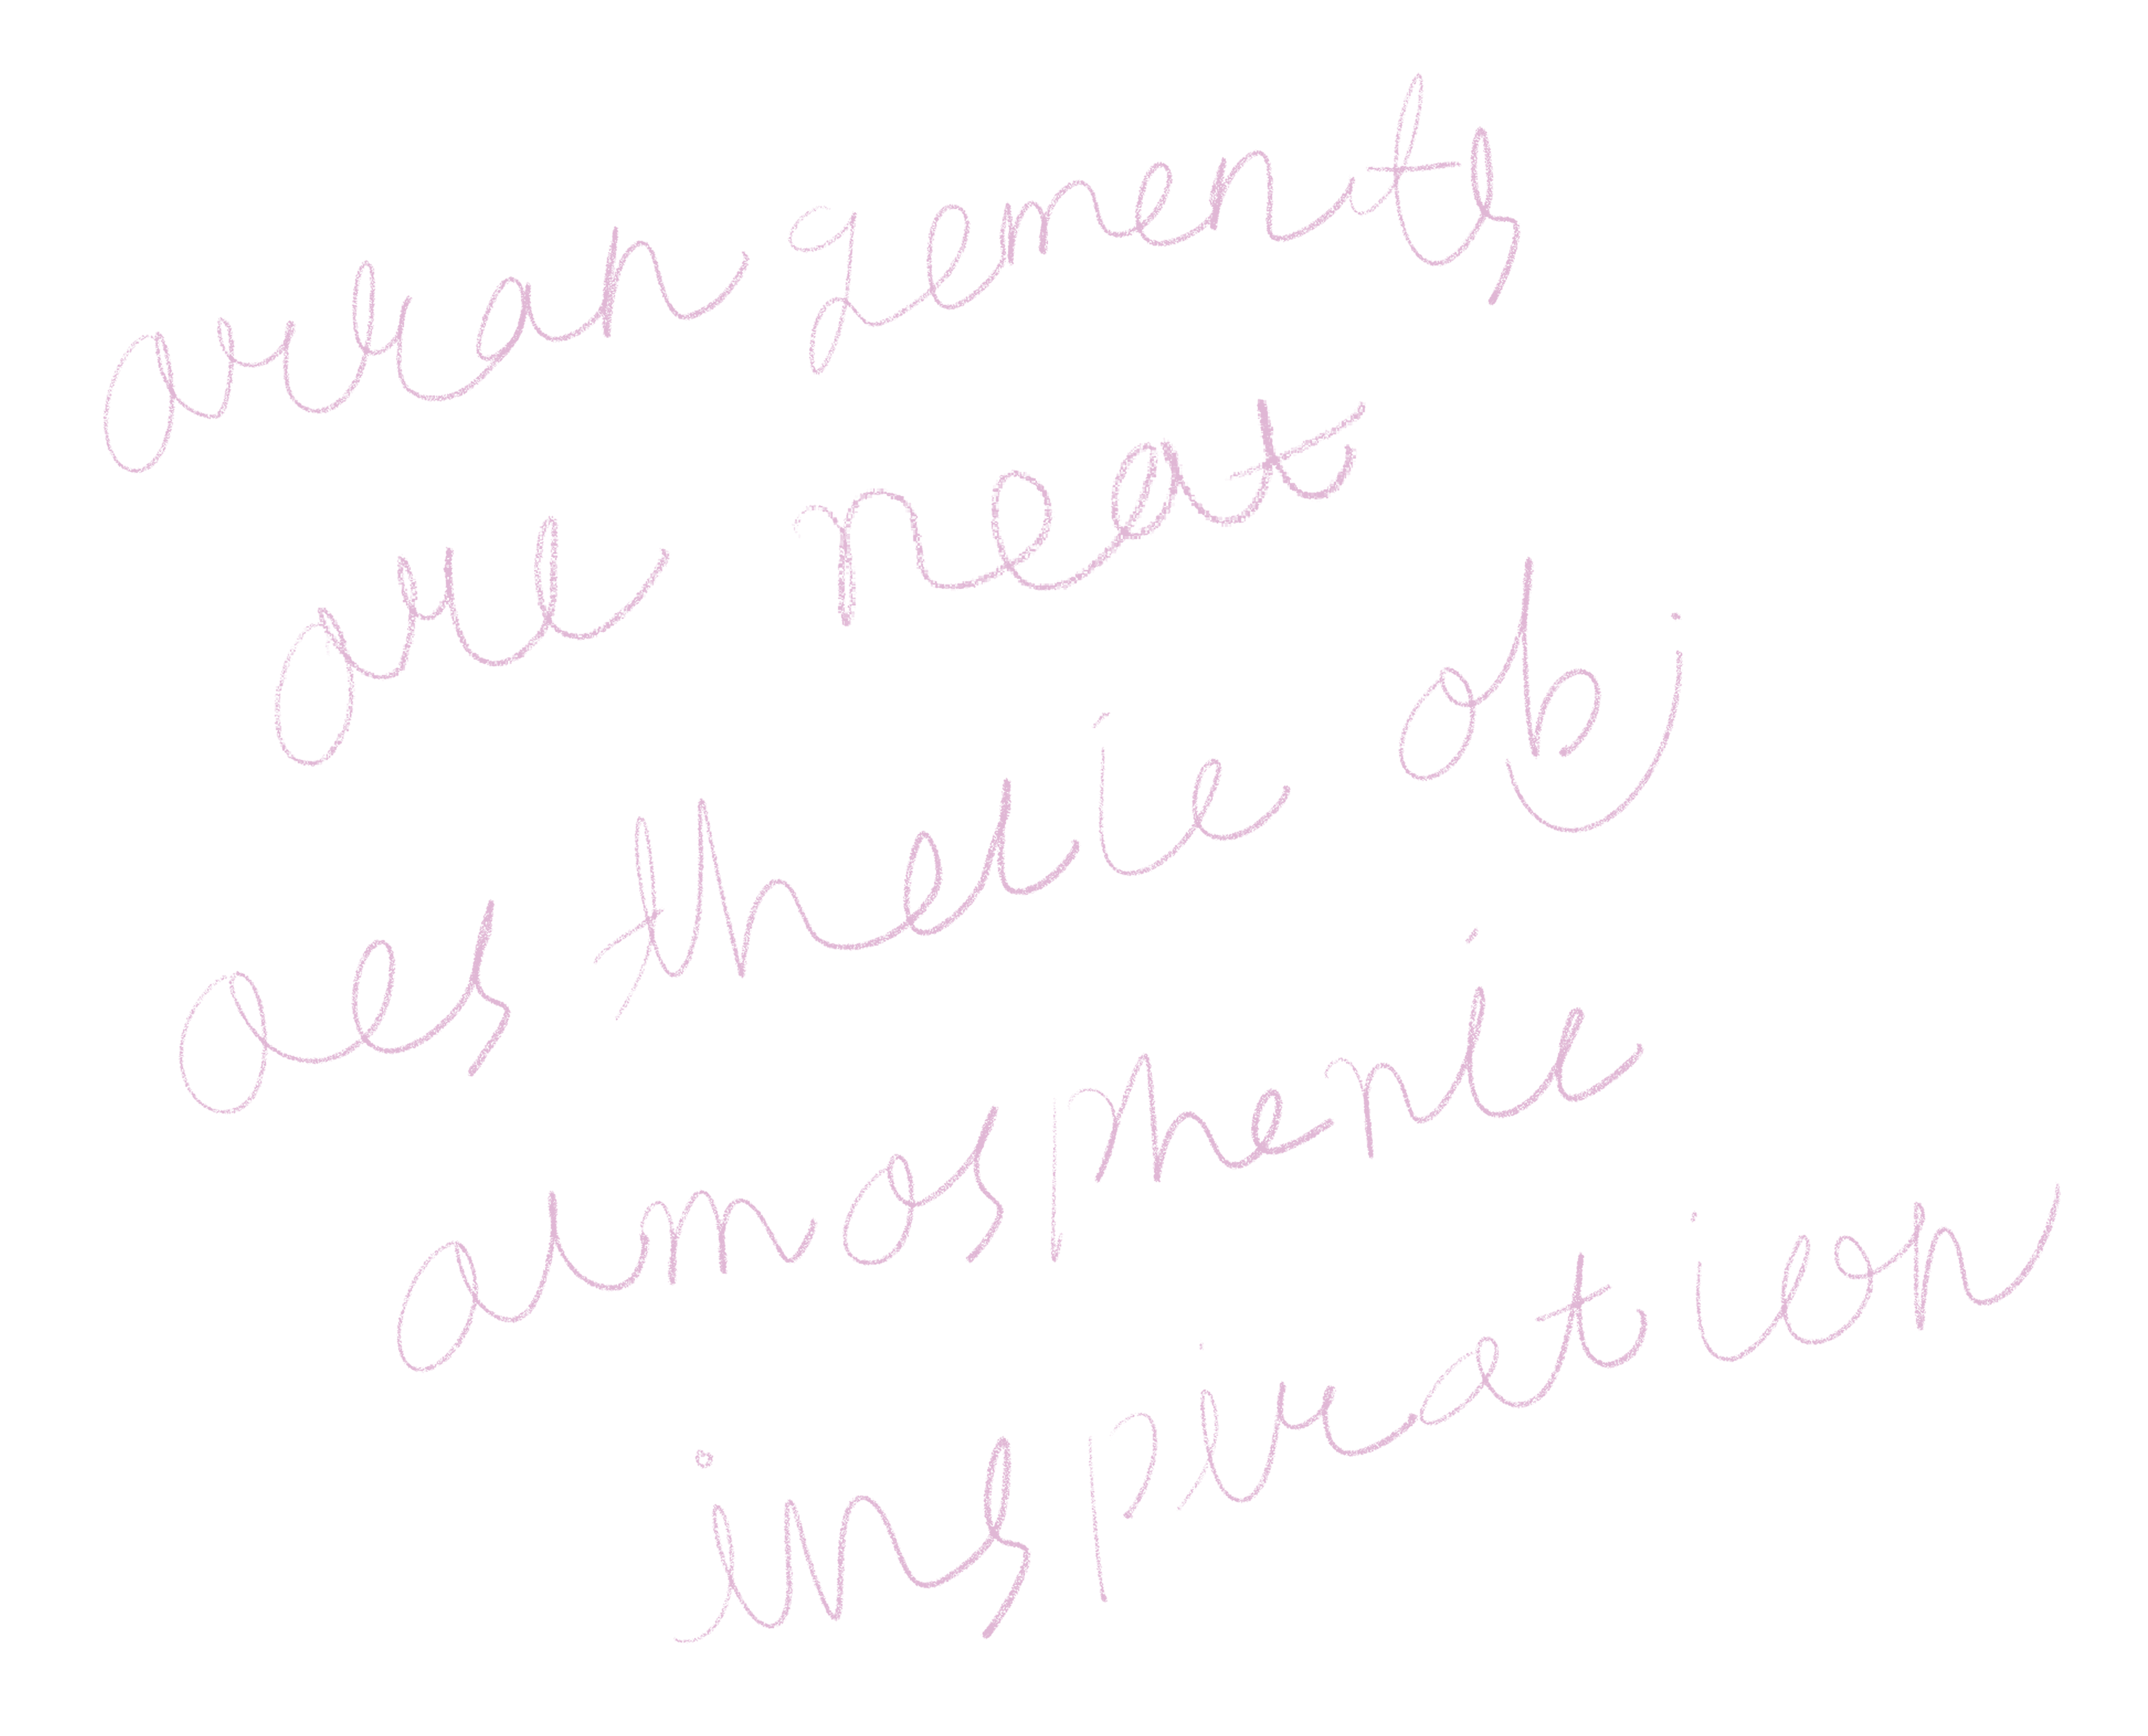 arrangements
are neat
aesthetic of
atmospheric
inspiration